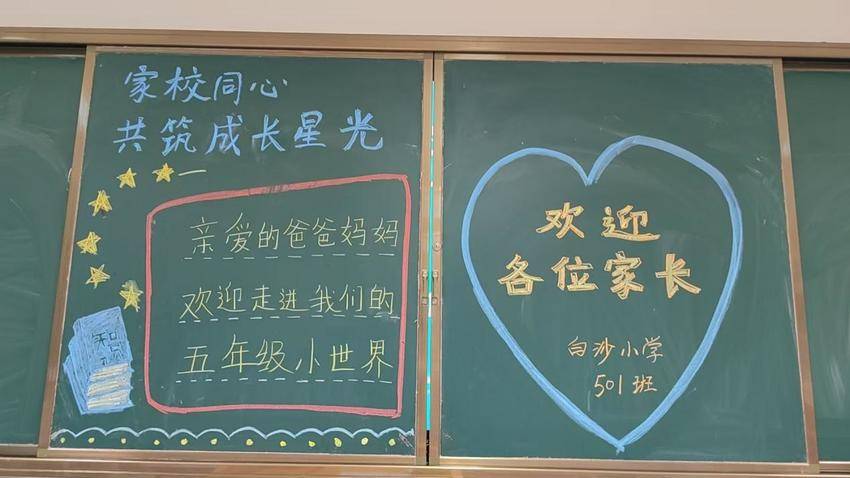 家校同心
共筑成长星光
亲爱的爸爸妈妈
欢迎走进我们的
五年级小世界
欢迎
各位家长
白沙小学
501班